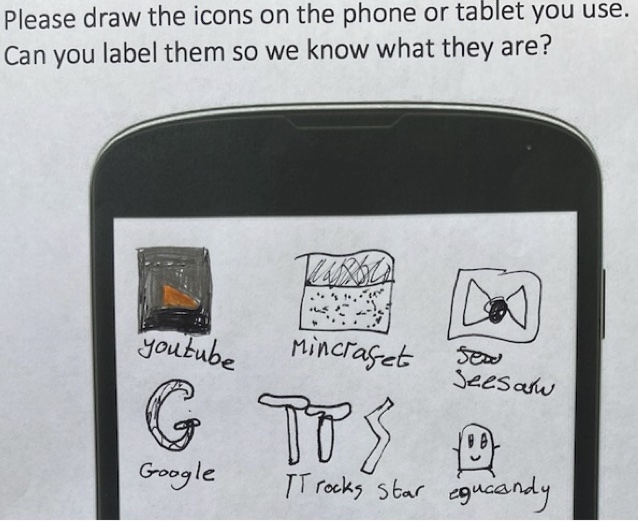 Please draw the icons on the phone or tablet you use.
Can you label them so we know what they are?
youtube
Mincrafet
Seesaw
G TTS
Google
TT rocks star
egucandy